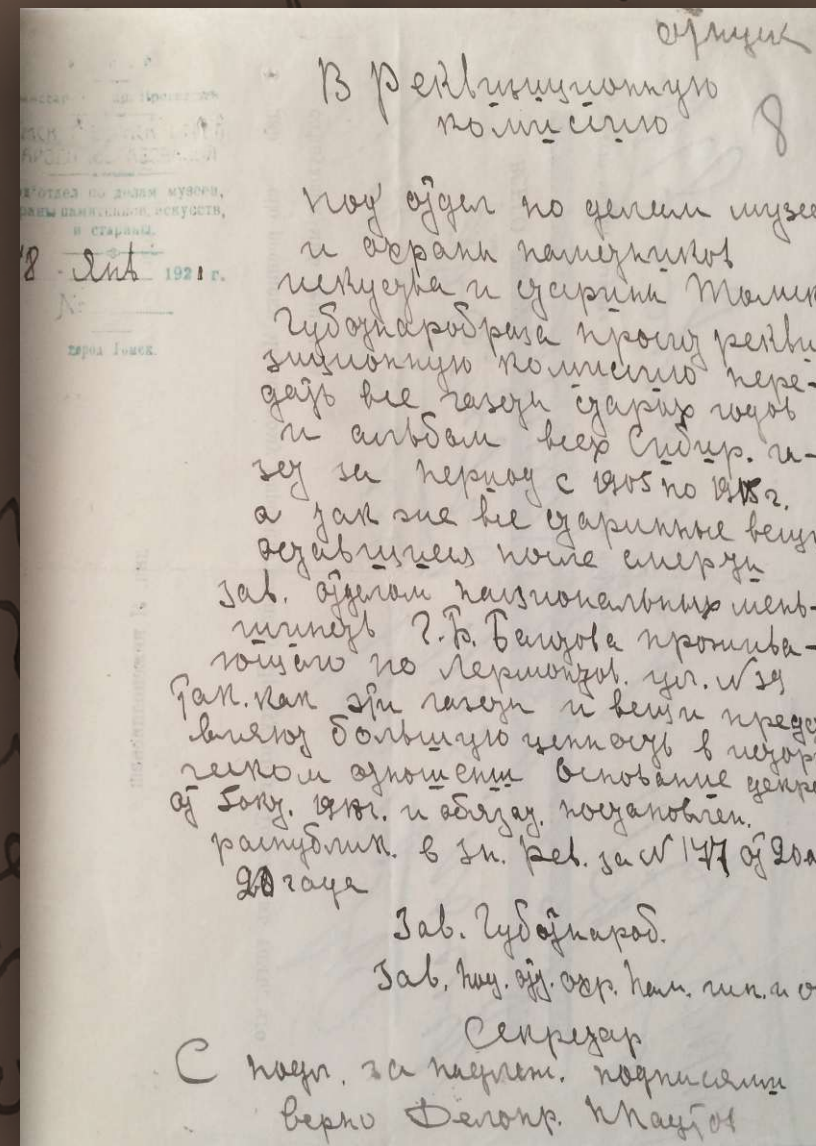 отпуск
В Реквизиционную
комиссию
8
под'отдел по делам музеев,
охраны памятников, искусств,
и старины.
18 Янв 1921 г.
№
город Томск.
под отдел по делам музее
и охраны памятников
искуства и старины Томск
Губотнаробраза просит рекви
зиционную комиссию пере-
дать все газеты старых годов
и альбом всех Сибир. га-
зет за период с 1905 по г.
а так же все старинные вещи
оставшиеся после смерти
зав. отделом национальных мень-
шинств Г.Б. прожива-
ющаго по Лермонтов. ул. №39
Так. как эти газеты и вещи предс
вляют большую ценность в истори
ческом отношении Основание декре
от 5 окт. и обязат. постановлен.
республик. в Зп. Рев. за № 177 от 20
20 года
Зав. Губотнароб.
Зав. под. отд. охр. пам. и о
Секретар
С подл. за надлеж. подписями
верно Делопр.